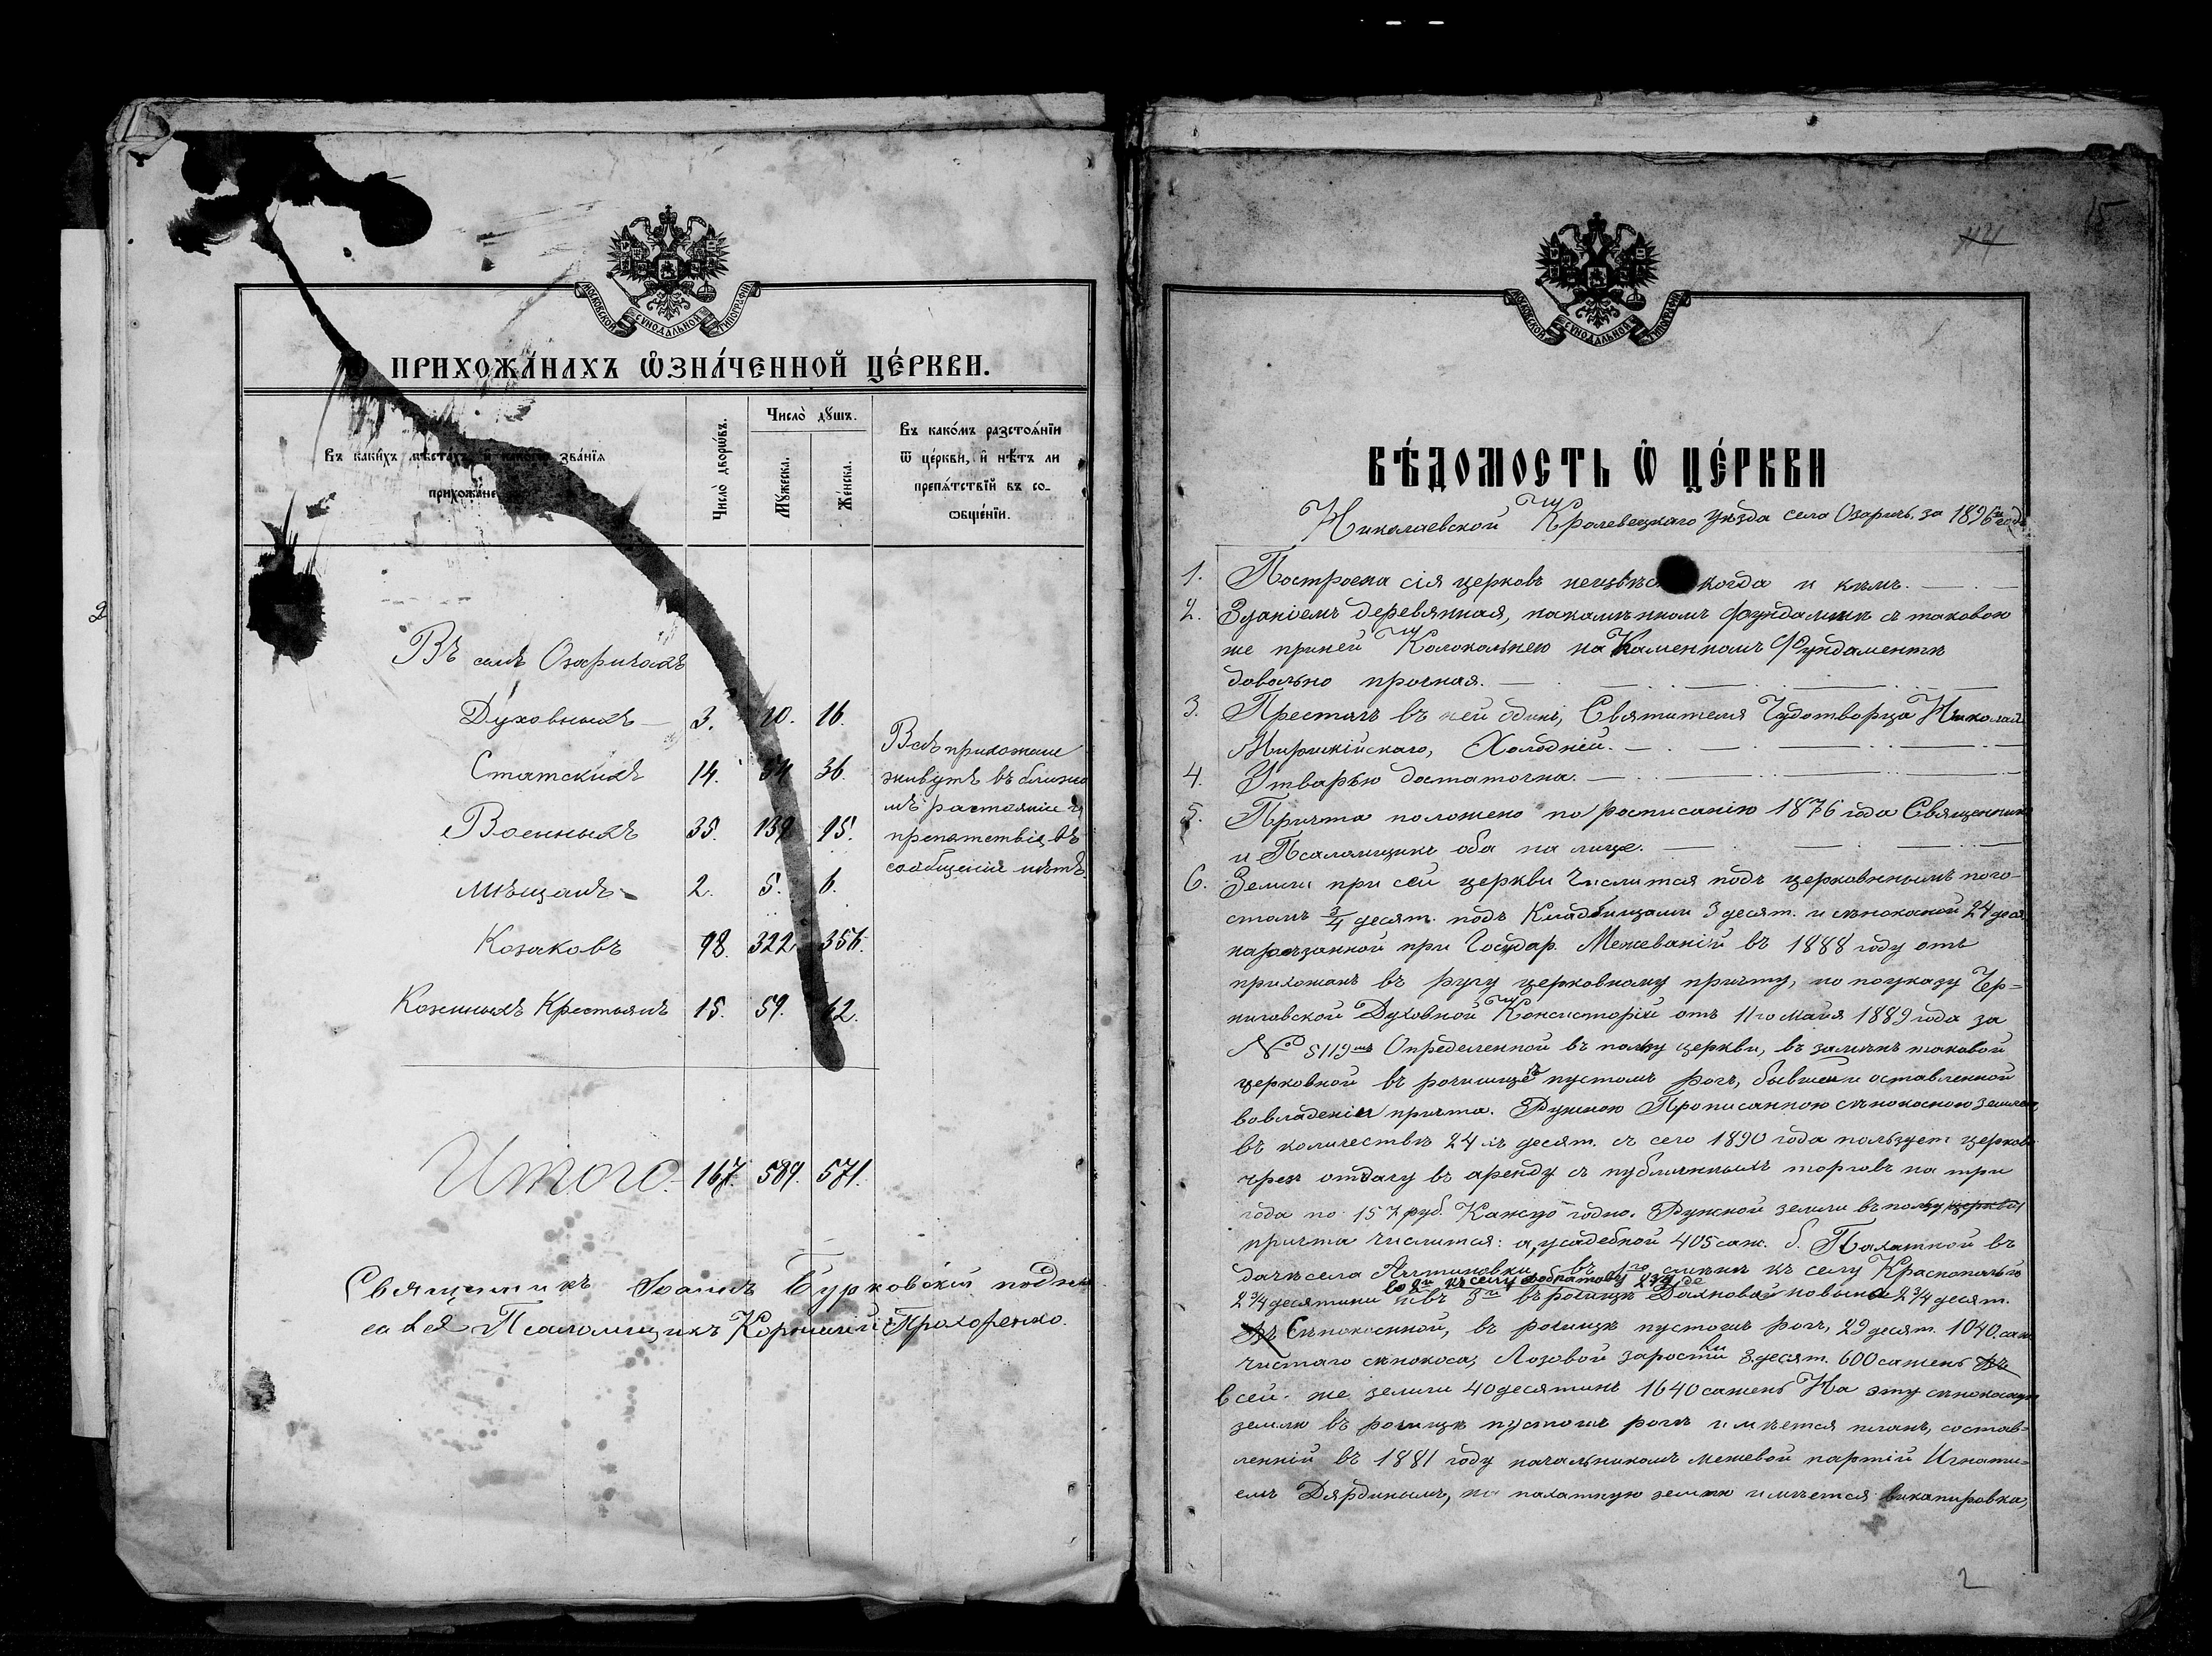 МОСКОВСКОЙ СѴНОДАЛЬНОЙ ТИПОГРАФІИ
ПРИХОЖА́НАХЪ Ѡ҆ЗНА́ЧЕННОЙ ЦЕ́РКВИ.
Въ каки́хъ мѣста́хъ, и како́гѡ зва́нїя
прихожа́не
Число̀ дворѡ́въ.
Число̀ дꙋшъ.
Мꙋ́жеска.
Же́нска.
Въ како́мъ разстоѧ́нїи
ѿ це́ркви, и҆ нѣ́тъ ли
препѧ́тствїй въ со-
ѡбще́нїи.
Въ селѣ Озаричахъ
Духовныхъ 3. 10. 16.
Статскихъ 14. 54 36.
Военныхъ 35. 139 95.
Мѣщанъ 2. 5. 6.
Козаковъ 98. 322 356.
Казенныхъ Крестьянъ 15. 59. 62.
Всѣ прихожане
живутъ въ ближа
мъ растояніе и
препятствія въ
сообщеніи нѣтъ.
Итого. 167. 589. 571.
Священникъ Іоаннъ Бурковскій подпи
салъ Псаломщикъ Корнилій Прохоренко.
15
44
МОСКОВСКОЙ СѴНОДАЛЬНОЙ ТИПОГРАФІИ
ВѢ́ДОМОСТЬ Ѡ҆ ЦЕ́РКВИ
Николаевской Кролевецкаго уѣзда села Озаричъ, за 1896й годъ
1. Построена сія церковь неизвѣстно когда и кѣмъ.
2. Зданіемъ деревянная, накаменномъ фундаментѣ съ таковою
же приней Колокольнею на Каменномъ Фундаментѣ
довольно прочная.
3. Престолъ въ ней одинъ, Святителя Чудотворца Николая
Мирликійскаго, Холодный.
4. Утварью достаточна.
5. Причта положено по росписанію 1876 года Священникъ
и Псаломщикъ оба на лице.
6. Земли при сей церкви числится подъ церковнымъ пого-
стомъ 3/4 десят. подъ Кладбищами 3 десят. и сѣнокосной 24 десят
нарѣзанной при Государ. Межеваніи въ 1888 году отъ
прихожанъ въ ругу церковному причту, но поуказу Чер-
ниговской Духовной Консисторіи отъ 11го Мая 1889 года за
№ 5119мъ Определенной въ пользу церкви, въ замѣнъ таковой
церковной въ рочищѣ пустомъ рогъ, бывшей и оставленной
вовладеніи причта. Ружною Прописанною сѣнокосною землею
въ количествѣ 24хъ десят. съ сего 1890 года пользует церковь
чрез отдачу въ аренду съ публичныхъ торговъ на три
года по 157 руб. Каждо годно. Ружной земли въ пользу церкви
причта числится: а, усадебной 405 саж. б. Пахатной въ
дачѣ села Алтиновки въ 1го смѣнѣ къ селу Краснополью
2 3/4 десятини и въ 3й въ рочищѣ 2 3/4 десят.
Въ Сѣнокосной, въ рочищѣ пустомъ рогъ, 29 десят. 1040 саж.
чистаго сѣнокоса, Лозовой заростки 8 десят. 600 сажень
всей же земли 40 десятинъ 1640 сажень На эту сѣнокосную
землю въ рочищѣ пустомъ рогъ имѣется планъ, состав-
ленній въ 1881 году начальникомъ межевой партіи Игнати-
емъ Дярдинымъ, на пахатную землю имѣется викапировка,
2